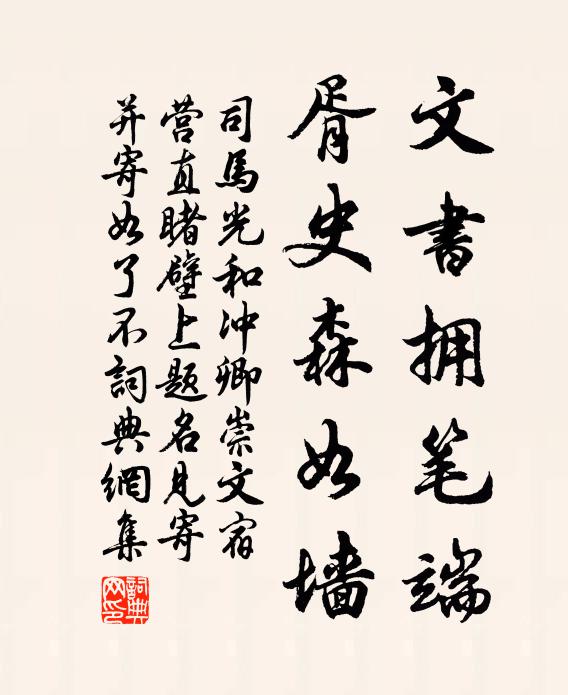 文書拥笔端
胥史森如墙
司馬光和冲卿崇文宿
营直睹壁上题名见寄
并寄如了不詞典網集
詞典网印